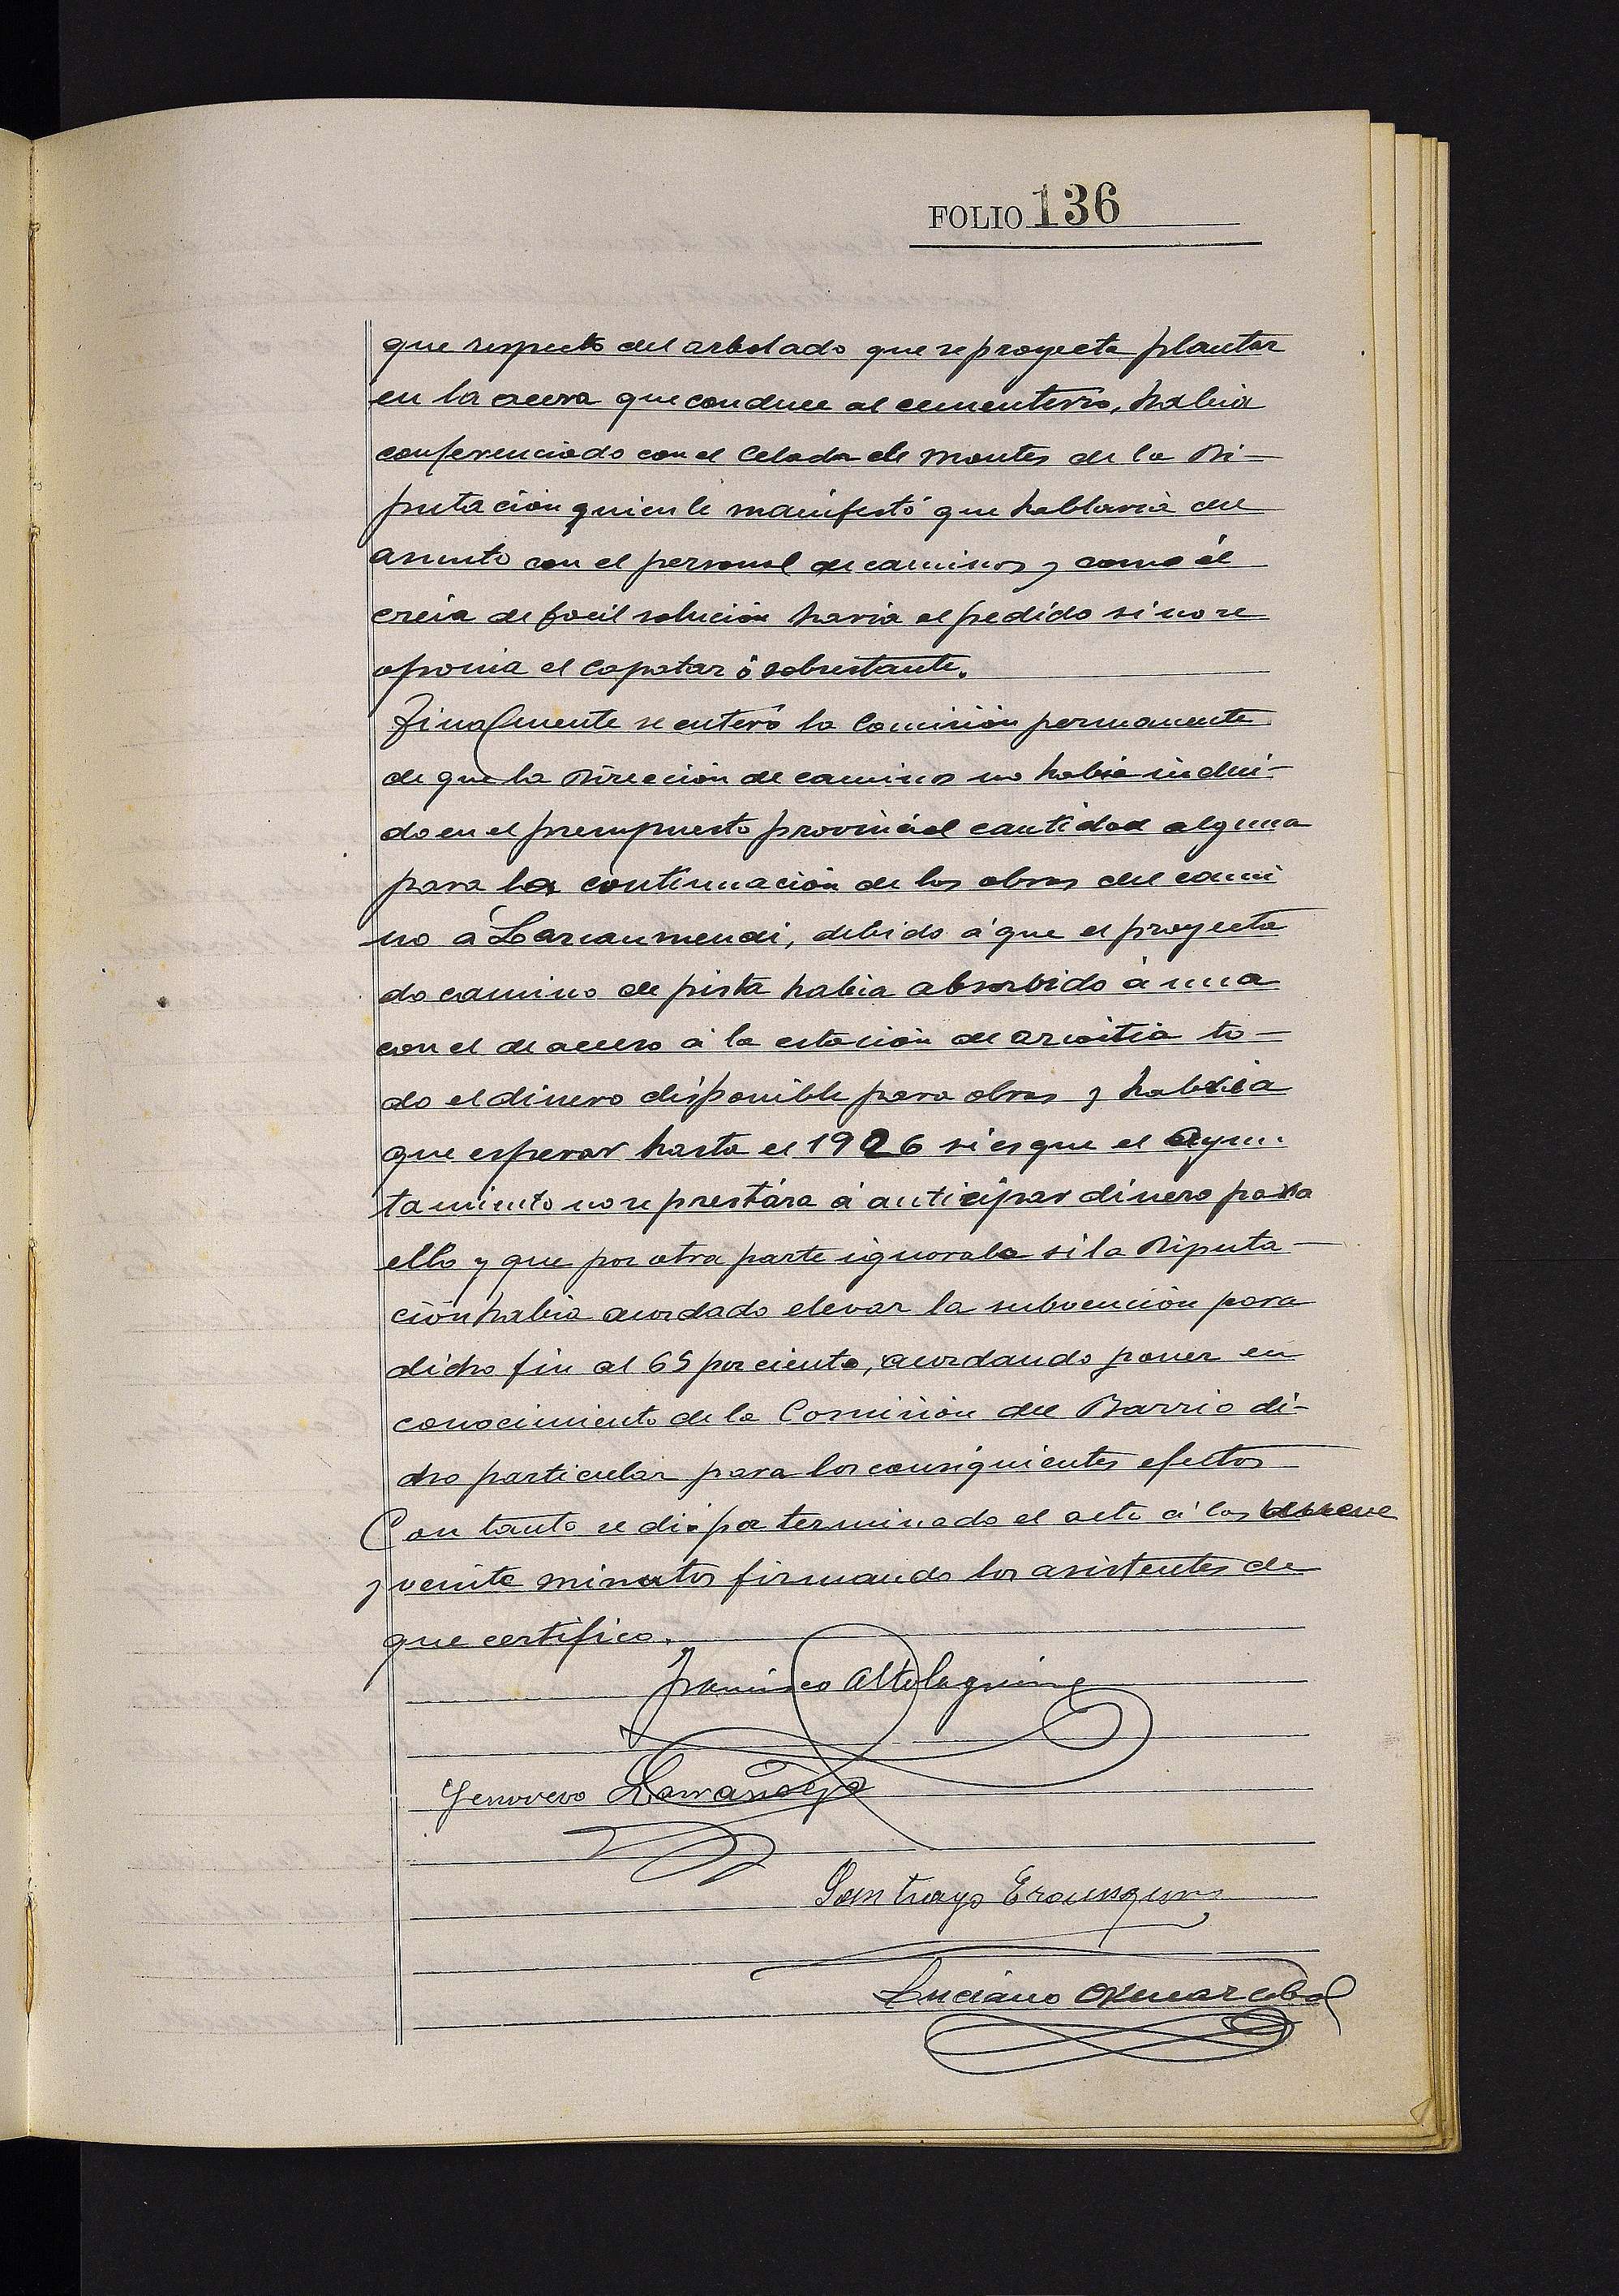 FOLIO 136
que respecto del arbolado que se proyecta plantar
en la acera que conduce al cementerio, habia
conferenciado con el Celador de Montes de la Di-
putación quien le manifestó que hablaria del
asunto con el personal de caminos y como él
creia de facil solución haria el pedido si no se
oponia el capataz ó sobrestante.
Finalmente se enteró la Comisión permanente
de que la Dirección de caminos no habia inclui-
do en el presupuesto provincial cantidad alguna
para la continuación de las obras del cami
no á Lazcaumendi, debido á que el proyecta
do camino de pista habia absorbido á una
con el de acceso á la estación de Azcoitia to-
do el dinero disponible para obras y habria
que esperar hasta el 1926 si es que el Ayun
tamiento no se prestára á anticipar dinero para
ello y que por otra parte ignoraba si la Diputa-
ción habia acordado elevar la subvención para
dicho fin al 65 por ciento, acordando poner en
conocimiento de la Comisión del Barrio di-
cho particular para los consiguientes efectos
Con tanto se dió por terminado el acto á las
y veinte minutos firmando los asistentes de
que certifico.
Francisco Altolaguirre
Genovevo Larrañaga
Santiago Erausquin
Luciano